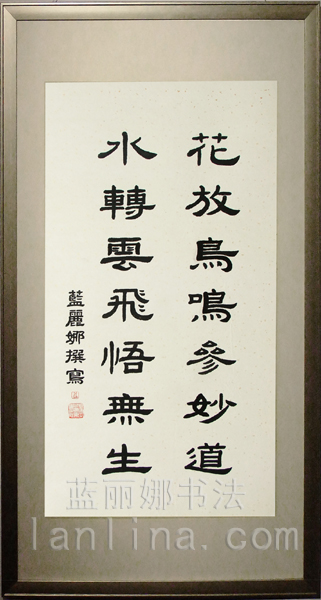 花放鳥鳴參妙道
水轉雲飛悟無生
藍麗娜撰寫
蓝丽娜书法
lanlina.com